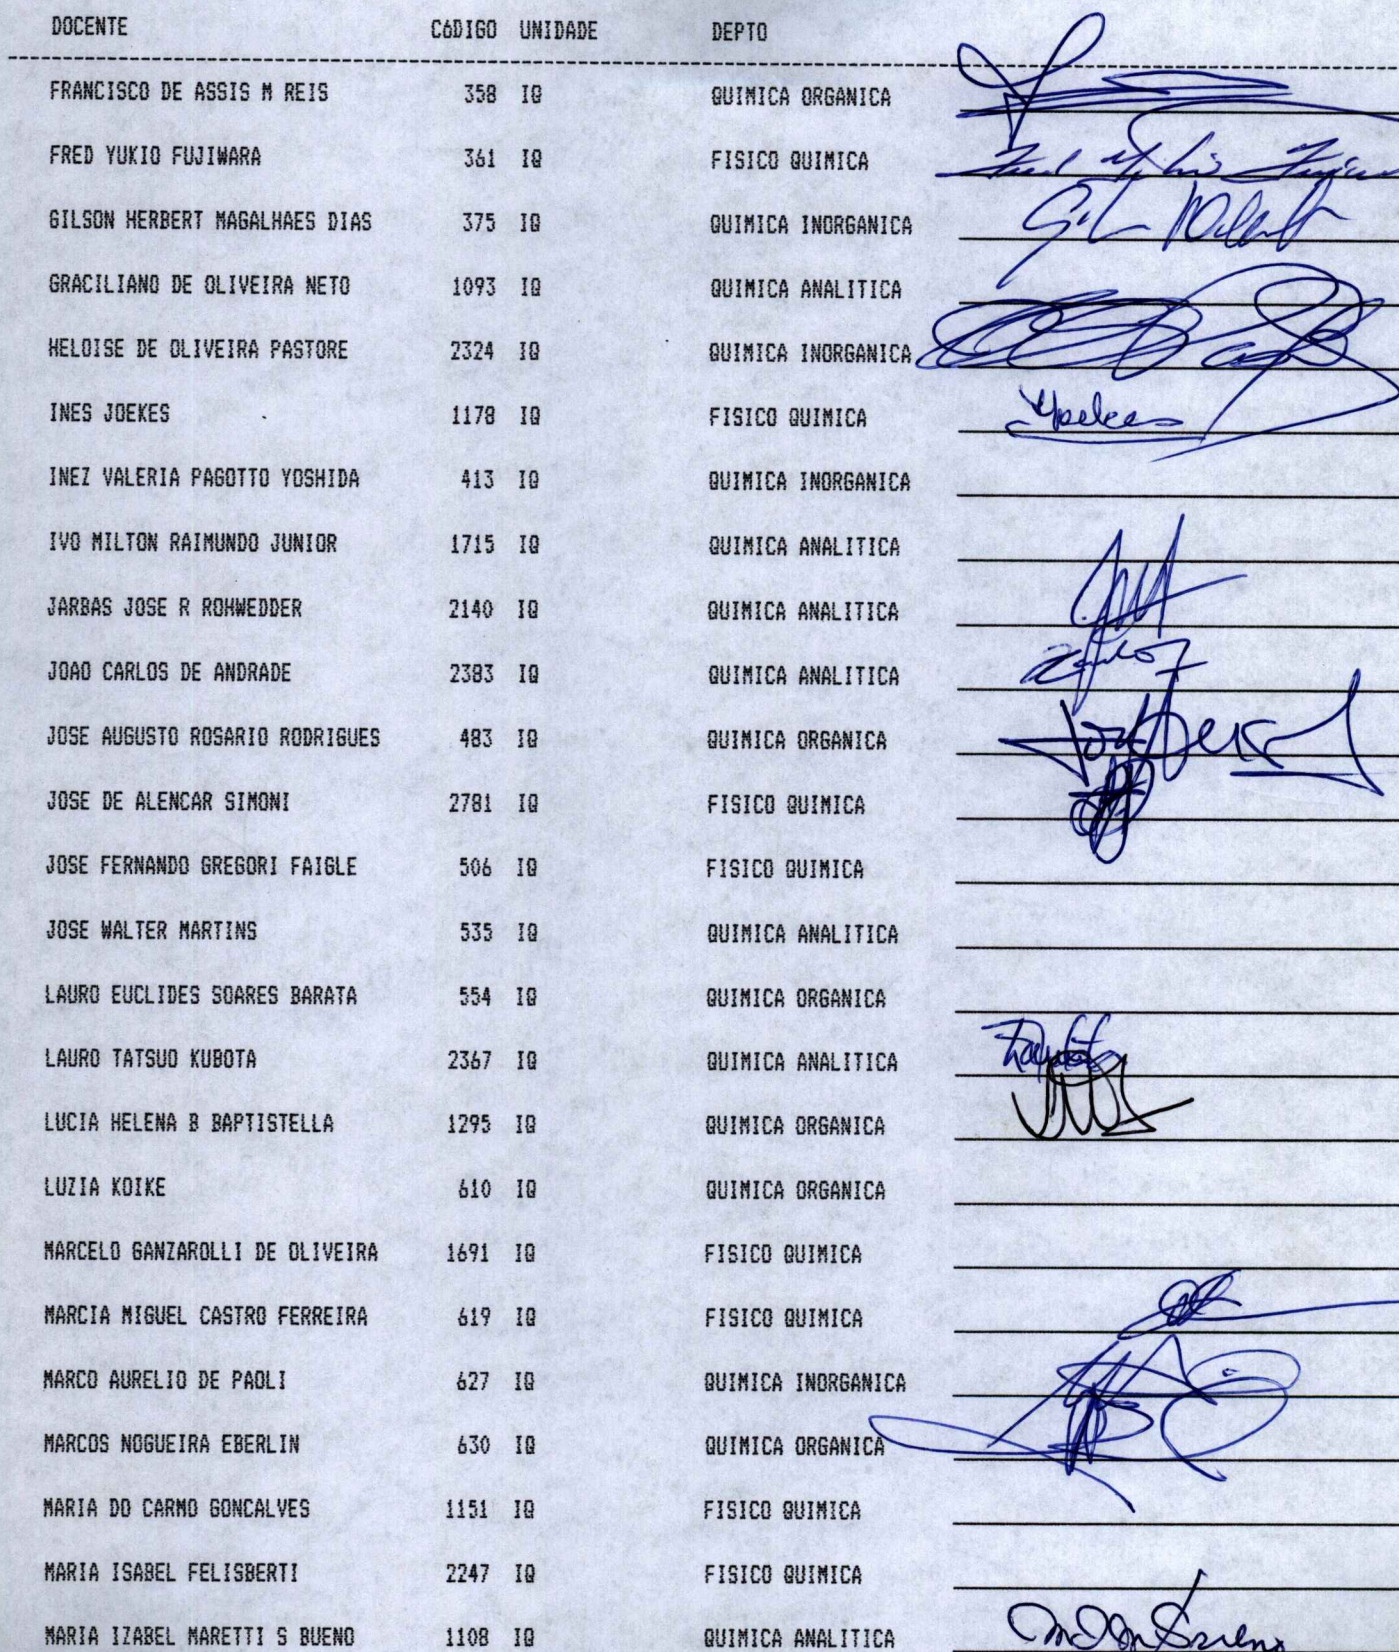 DOCENTE CóDIGO UNIDADE DEPTO
FRANCISCO DE ASSIS M REIS 358 IQ QUIMICA ORGANICA
FRED YUKIO FUJIWARA 361 IQ FISICO QUIMICA
GILSON HERBERT MAGALHAES DIAS 375 IQ QUIMICA INORGANICA
GRACILIANO DE OLIVEIRA NETO 1093 IQ QUIMICA ANALITICA
HELOISE DE OLIVEIRA PASTORE 2324 IQ QUIMICA INORGANICA
INES JOEKES 1178 IQ FISICO QUIMICA
INEZ VALERIA PAGOTTO YOSHIDA 413 IQ QUIMICA INORGANICA
IVO MILTON RAIMUNDO JUNIOR 1715 IQ QUIMICA ANALITICA
JARBAS JOSE R ROHWEDDER 2140 IQ QUIMICA ANALITICA
JOAO CARLOS DE ANDRADE 2383 IQ QUIMICA ANALITICA
JOSE AUGUSTO ROSARIO RODRIGUES 483 IQ QUIMICA ORGANICA
JOSE DE ALENCAR SIMONI 2781 IQ FISICO QUIMICA
JOSE FERNANDO GREGORI FAIGLE 506 IQ FISICO QUIMICA
JOSE WALTER MARTINS 535 IQ QUIMICA ANALITICA
LAURO EUCLIDES SOARES BARATA 554 IQ QUIMICA ORGANICA
LAURO TATSUO KUBOTA 2367 IQ QUIMICA ANALITICA
LUCIA HELENA B BAPTISTELLA 1295 IQ QUIMICA ORGANICA
LUZIA KOIKE 610 IQ QUIMICA ORGANICA
MARCELO GANZAROLLI DE OLIVEIRA 1691 IQ FISICO QUIMICA
MARCIA MIGUEL CASTRO FERREIRA 619 IQ FISICO QUIMICA
MARCO AURELIO DE PAOLI 627 IQ QUIMICA INORGANICA
MARCOS NOGUEIRA EBERLIN 630 IQ QUIMICA ORGANICA
MARIA DO CARMO GONCALVES 1151 IQ FISICO QUIMICA
MARIA ISABEL FELISBERTI 2247 IQ FISICO QUIMICA
MARIA IZABEL MARETTI S BUENO 1108 IQ QUIMICA ANALITICA